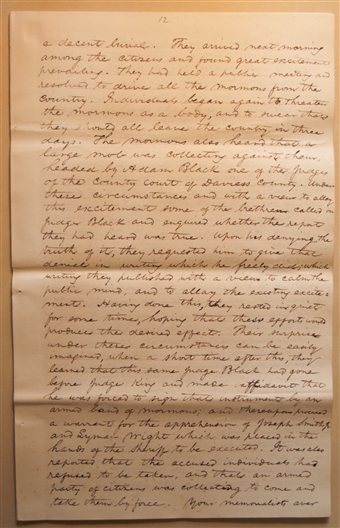 12
a decent burial. They arrived next morning
among the citizens and found great excitement
prevailing. They had held a public meeting and
resolved to drive all the mormons from the
County. Individuals began again to threaten
the mormons as a body, and to swear that
they should all leave the County in three
days. The mormons also heard that a
large mob was collecting against them,
headed by Adam Black one of the Judges
of the County Court of Daviess County. Under
these circumstances and with a view to allay
this excitement some of the bethren called on
Judge Black and enquired whether the report
they had heard was true. Upon his denying the
truth of it, they requested him to give that
denial in writing which he freely did, which
writing they published with a view to calm the
public mind, and to allay the existing excite-
ment. Having done this, they rested in quiet
for some time, hoping that these efforts would
produce the desired effect. Their surprise
under these circumstances can be easily
imagined, when a short time after this, they
learned that this same Judge Black had gone
before Judge King and made affidavit that
he was forced to sign that instrument by an
armed band of mormons, and thereupon procured
a warrant for the apprehension of Joseph Smith Jr
and Lyman Wight which was placed in the
hands of the Sheriff to be executed. It was also
reported that the accused individuals had
refused to be taken, and that an armed
party of citizens was collecting to come and
take them by force. Your memorialists aver